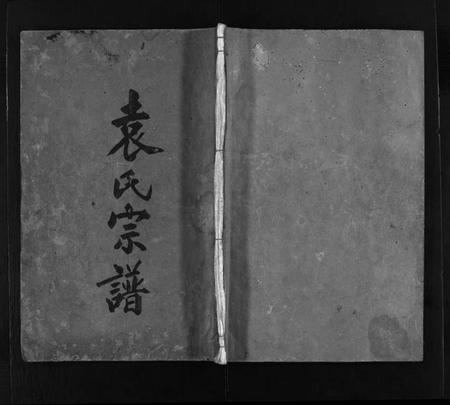 袁氏宗譜